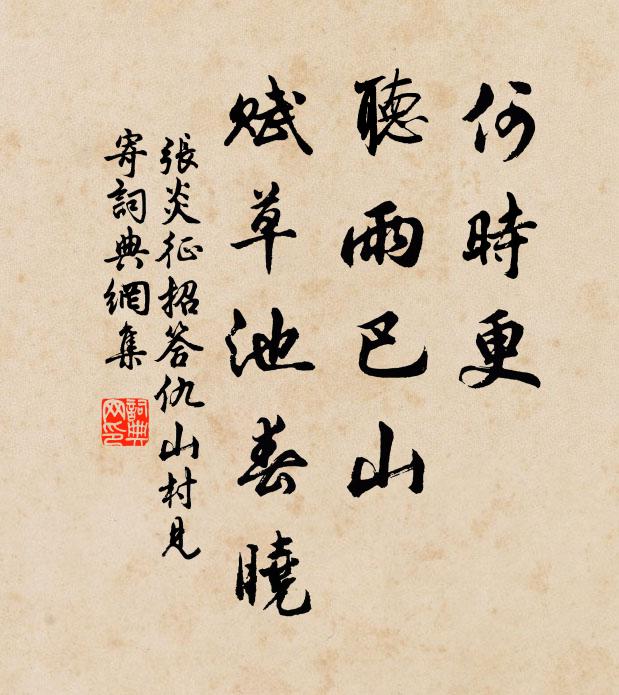 何時更
聽雨巴山
賦草池春曉
張炎征招答仇山村見
寄詞典網集
詞典
网印